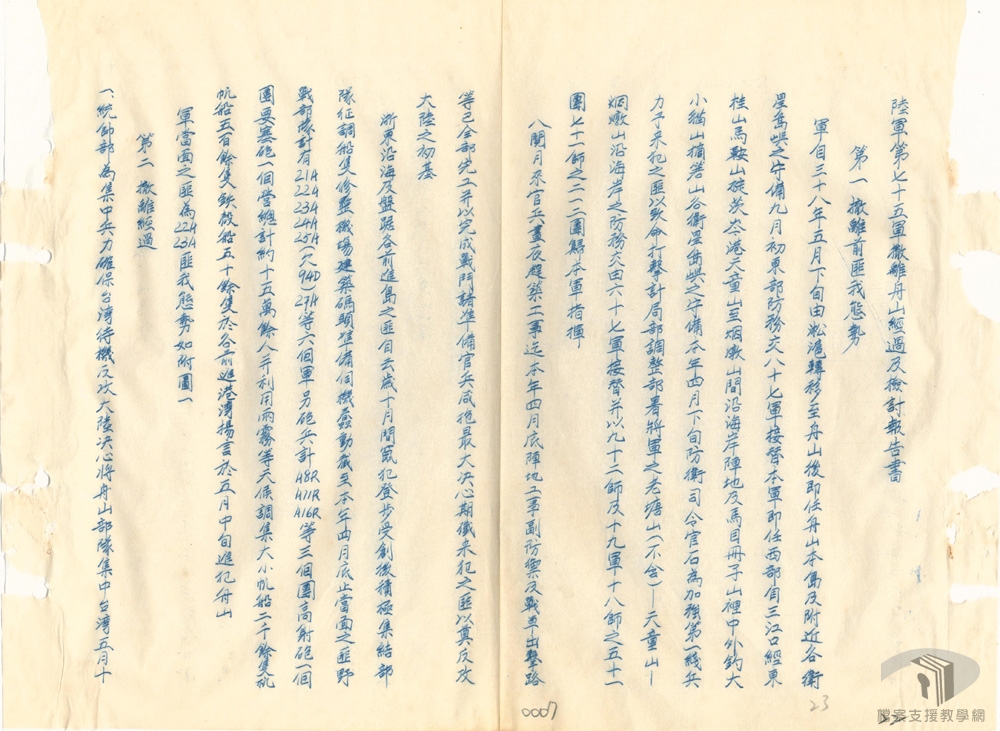 陸軍第七十五軍撤離舟山經過及檢討報告書
第一 撤離前匪我態勢
軍自三十八年五月下旬由淞滬轉移至舟山後即任舟山本島及附近各衛
星島嶼之守備九月初東部防務交八十七軍接替本軍即任西部自三江口經東
桂山馬鞍山碇茨岺港天童山至烟墩山間沿海岸陣地及馬目冊子山裡中外釣大
小猫山摘箬山各衛星島嶼之守備本年四月下旬防衛司令官石為加強第一綫兵
力予來犯之匪以致命打擊計局部調整部署將軍之老塘山(不含)—天童山—
烟墩山沿海岸之防務交由六十七軍接替并以九十二師及十九軍十八師之五十一
團七十一師之二一二團歸本軍指揮
八閱月來官兵晝夜趕築工事迄本年四月底陣地工事副防禦及戰車出擊路
等已全部完工并以完成戰鬥諸準備官兵咸抱最大決心期殲來犯之匪以奠反攻
大陸之初基
浙東沿海及盤踞各前進島之匪自去歲十月間竄犯登步受創後積極集結部
隊征調船隻修整機場建築碼頭準備伺機蠢動截至本年四月底止當面之匪野
戰部隊計有21A 22A 23A 24A 25A(欠94D)27A等六個軍另砲兵計A8R A11R A16R等三個團高射砲一個
團要塞砲八個營總計約十五萬餘人并利用雨霧等天候調集大小帆船二千餘隻机
帆船五百餘隻鉄殼船五十餘隻於各前進港灣揚言於五月中旬進犯舟山
軍當面之匪為22A 23A匪我態勢如附圖一
第二 撤離經過
一、統帥部為集中兵力確保台灣待機反攻大陸決心將舟山部隊集中台灣五月十
0007
23
檔案支援教學網